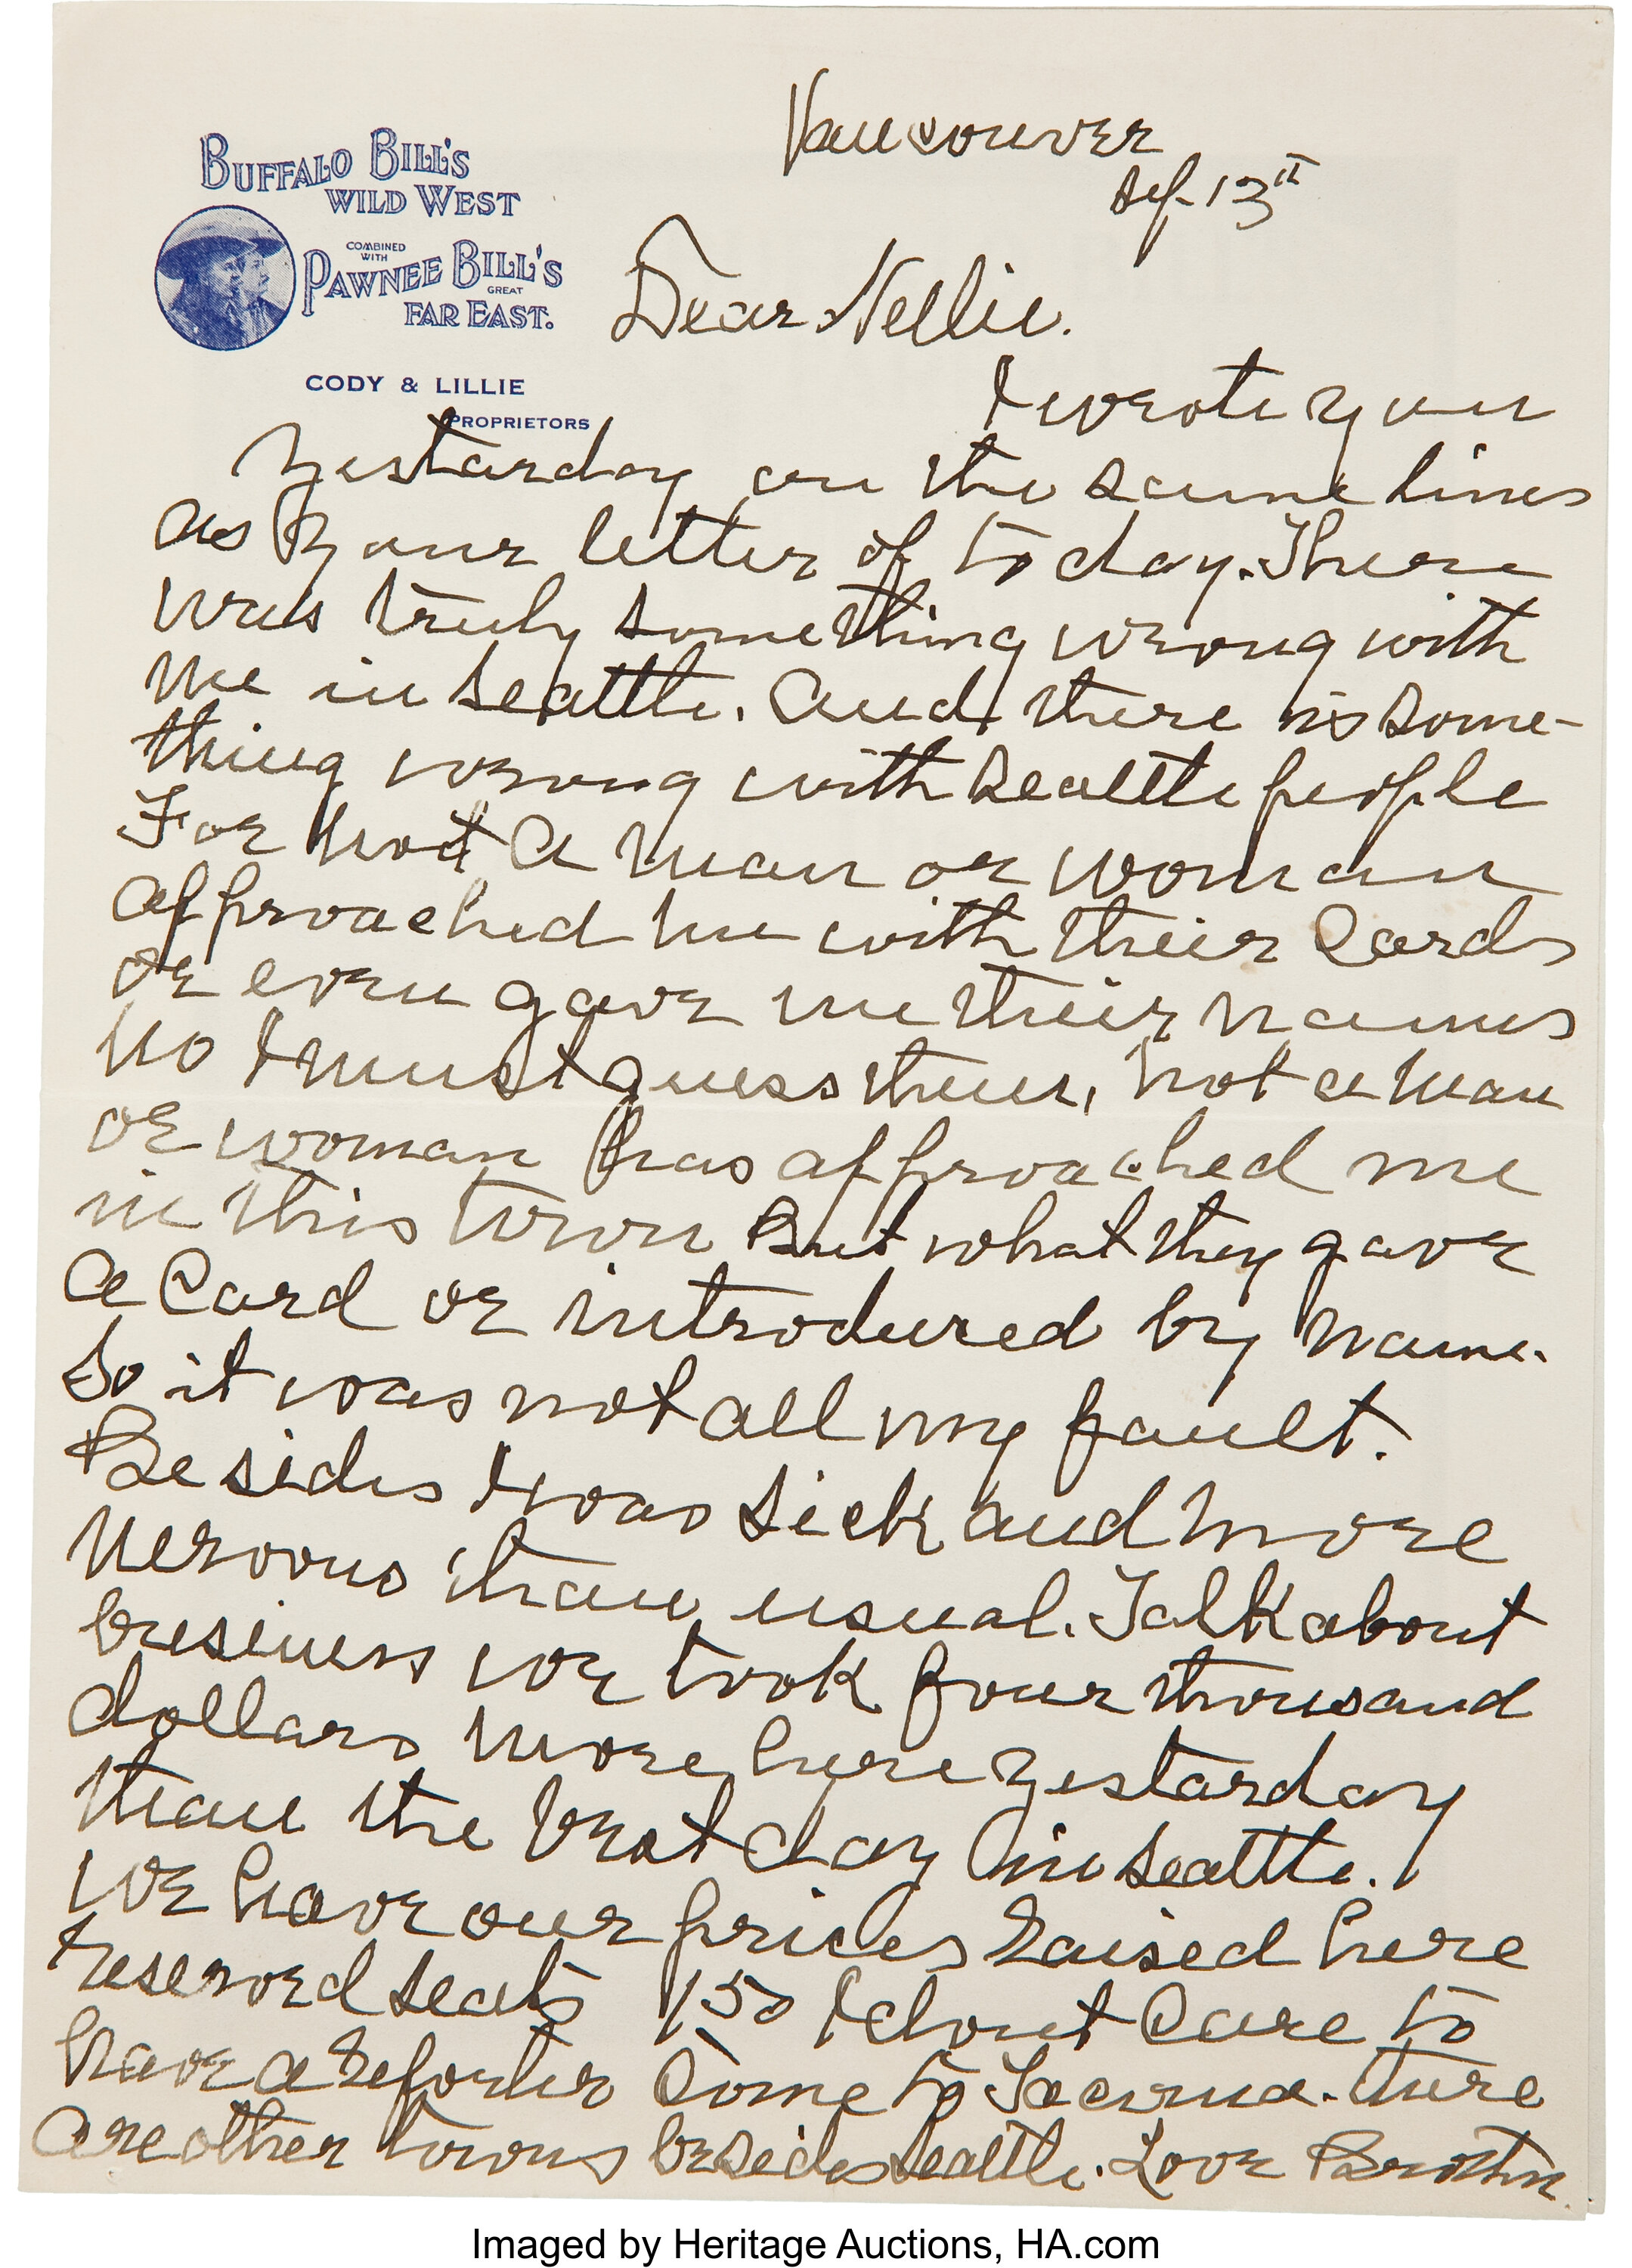 BUFFALO BILL'S
WILD WEST
COMBINED
WITH
PAWNEE BILL'S
GREAT
FAR EAST.
CODY & LILLIE
PROPRIETORS
Vancouver
Sep. 13th
Dear Nellie.
I wrote you
Yestarday on the same lines
as your letter of to day. There
was truly something wrong with
me in Seattle. And there is some-
thing wrong with Seattle people
For not a man or woman
approached me with their Cards
or even gave me their names
no I must guess them, not a man
or woman has approached me
in this town But what they gave
a Card or introduced by name.
So it was not all my fault.
Besides I was sick and more
nervous than usual. Talk about
business we took four thousand
dollars more here yestarday
than the best day in Seattle.
We have our prices raised here
reserved seats 150 I dont Care to
have a reporter Come to Tacoma. there
are other towns besides Seattle. Love Brother.
Imaged by Heritage Auctions, HA.com